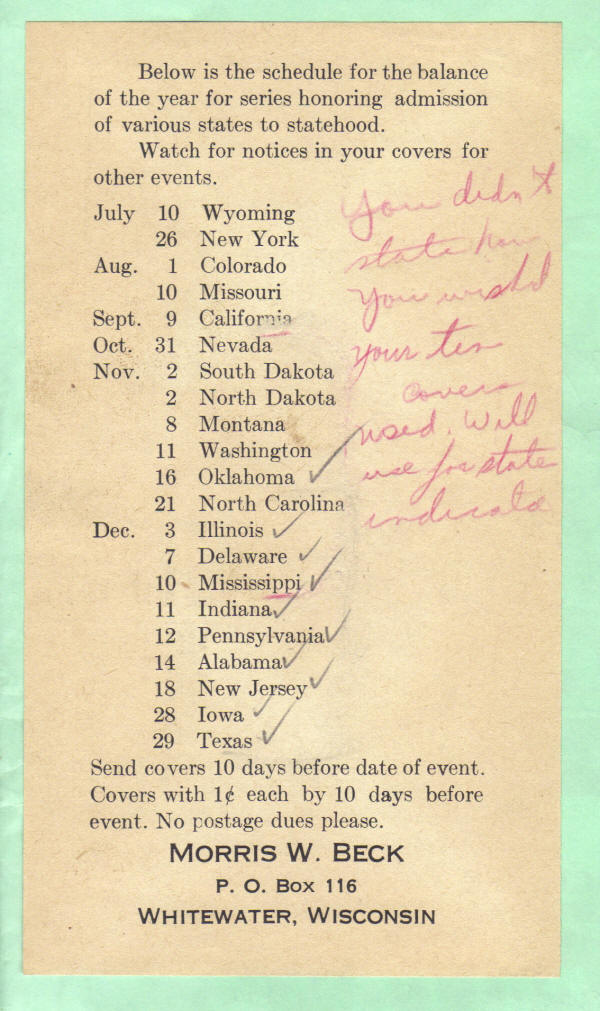 Below is the schedule for the balance
of the year for series honoring admission
of various states to statehood.
Watch for notices in your covers for
other events.
July 10 Wyoming
26 New York
Aug. 1 Colorado
10 Missouri
Sept. 9 California
Oct. 31 Nevada
Nov. 2 South Dakota
2 North Dakota
8 Montana
11 Washington
16 Oklahoma
21 North Carolina
Dec. 3 Illinois
7 Delaware
10 Mississippi
11 Indiana
12 Pennsylvania
14 Alabama
18 New Jersey
28 Iowa
29 Texas
You didn't
state how
you wished
your ten
covers
used. Will
use for state
Send covers 10 days before date of event.
Covers with 1¢ each by 10 days before
event. No postage dues please.
MORRIS W. BECK
P. O. BOX 116
WHITEWATER, WISCONSIN